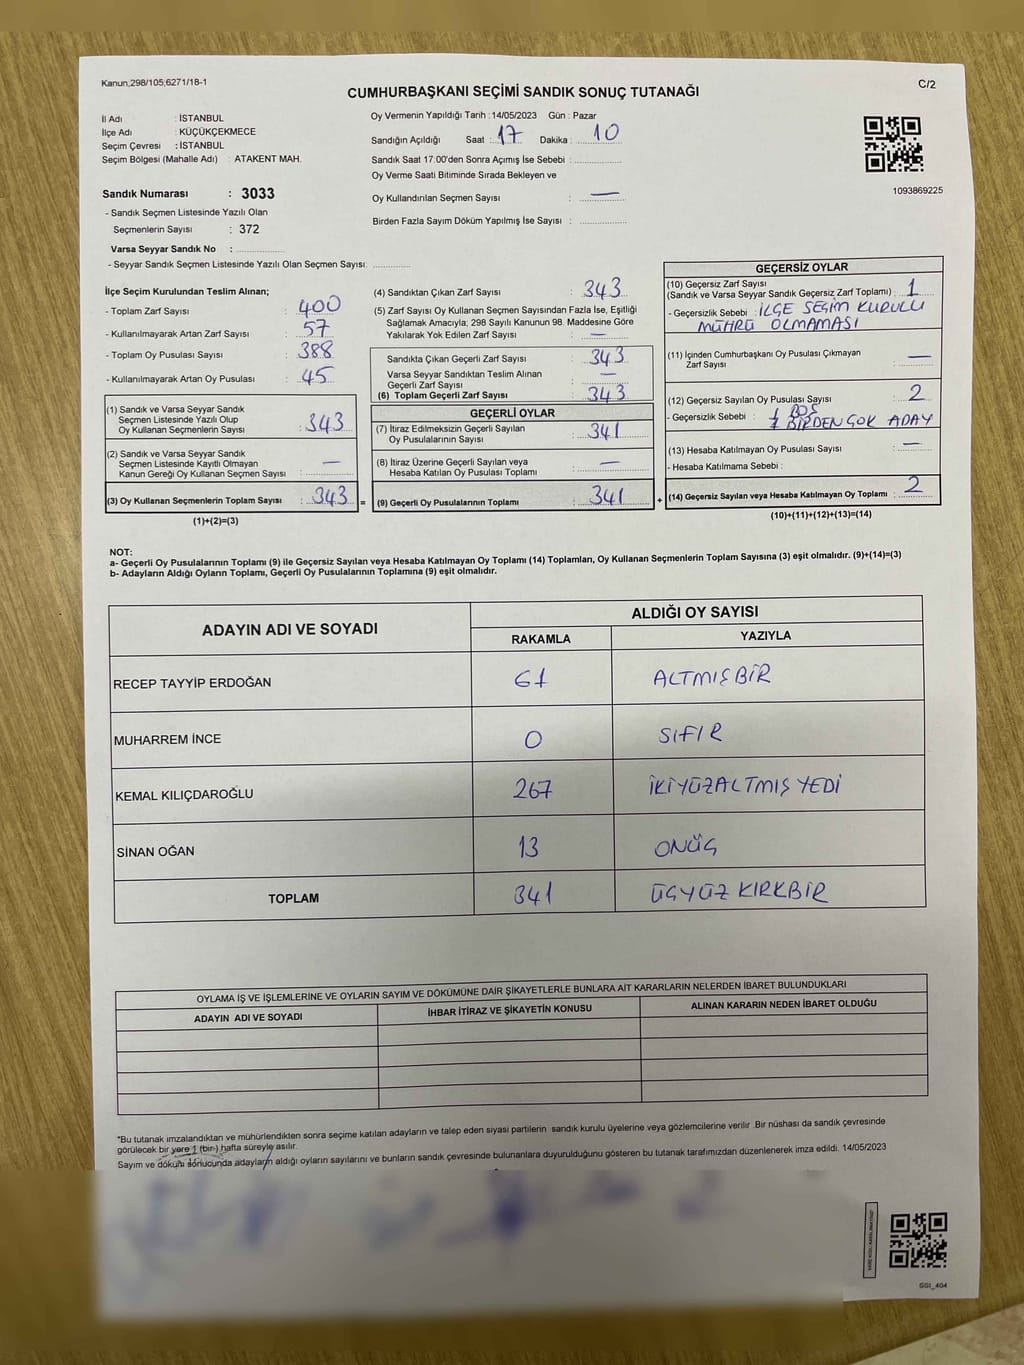 Kanun,298/105;6271/18-1
C/2
CUMHURBAŞKANI SEÇİMİ SANDIK SONUÇ TUTANAĞI
İl Adı : İSTANBUL
İlçe Adı : KÜÇÜKÇEKMECE
Seçim Çevresi : İSTANBUL
Seçim Bölgesi (Mahalle Adı) : ATAKENT MAH.
Sandık Numarası : 3033
- Sandık Seçmen Listesinde Yazılı Olan
Seçmenlerin Sayısı : 372
Varsa Seyyar Sandık No :
- Seyyar Sandık Seçmen Listesinde Yazılı Olan Seçmen Sayısı:
Oy Vermenin Yapıldığı Tarih :14/05/2023 Gün : Pazar
Sandığın Açıldığı Saat : 17 Dakika : 10
Sandık Saat 17.00'den Sonra Açımış İse Sebebi :
Oy Verme Saati Bitiminde Sırada Bekleyen ve
Oy Kullandırılan Seçmen Sayısı : —
Birden Fazla Sayım Döküm Yapılmış İse Sayısı :
1093869225
İlçe Seçim Kurulundan Teslim Alınan;
- Toplam Zarf Sayısı : 400
- Kullanılmayarak Artan Zarf Sayısı : 57
- Toplam Oy Pusulası Sayısı : 388
- Kullanılmayarak Artan Oy Pusulası : 45
(1) Sandık ve Varsa Seyyar Sandık
Seçmen Listesinde Yazılı Olup
Oy Kullanan Seçmenlerin Sayısı : 343
(2) Sandık ve Varsa Seyyar Sandık
Seçmen Listesinde Kayıtlı Olmayan
Kanun Gereği Oy Kullanan Seçmen Sayısı : —
(3) Oy Kullanan Seçmenlerin Toplam Sayısı : 343 =
(1)+(2)=(3)
(4) Sandıktan Çıkan Zarf Sayısı : 343
(5) Zarf Sayısı Oy Kullanan Seçmen Sayısından Fazla İse, Eşitliği
Sağlamak Amacıyla; 298 Sayılı Kanunun 98. Maddesine Göre
Yakılarak Yok Edilen Zarf Sayısı : —
Sandıkta Çıkan Geçerli Zarf Sayısı : 343
Varsa Seyyar Sandıktan Teslim Alınan
Geçerli Zarf Sayısı : —
(6) Toplam Geçerli Zarf Sayısı : 343
GEÇERLİ OYLAR
(7) İtiraz Edilmeksizin Geçerli Sayılan
Oy Pusulalarının Sayısı : 341
(8) İtiraz Üzerine Geçerli Sayılan veya
Hesaba Katılan Oy Pusulası Toplamı : —
(9) Geçerli Oy Pusulalarının Toplamı : 341 +
GEÇERSİZ OYLAR
(10) Geçersiz Zarf Sayısı
(Sandık ve Varsa Seyyar Sandık Geçersiz Zarf Toplamı) : 1
- Geçersizlik Sebebi : İLÇE SEÇİM KURULU
MÜHRÜ OLMAMASI
(11) İçinden Cumhurbaşkanı Oy Pusulası Çıkmayan
Zarf Sayısı : —
(12) Geçersiz Sayılan Oy Pusulası Sayısı : 2
- Geçersizlik Sebebi : 1 BOŞ
1 BİRDEN ÇOK ADAY
(13) Hesaba Katılmayan Oy Pusulası Sayısı : —
- Hesaba Katılmama Sebebi :
(14) Geçersiz Sayılan veya Hesaba Katılmayan Oy Toplamı : 2
(10)+(11)+(12)+(13)=(14)
NOT:
a- Geçerli Oy Pusulalarının Toplamı (9) ile Geçersiz Sayılan veya Hesaba Katılmayan Oy Toplamı (14) Toplamları, Oy Kullanan Seçmenlerin Toplam Sayısına (3) eşit olmalıdır. (9)+(14)=(3)
b- Adayların Aldığı Oyların Toplamı, Geçerli Oy Pusulalarının Toplamına (9) eşit olmalıdır.
ADAYIN ADI VE SOYADI ALDIĞI OY SAYISI
RAKAMLA YAZIYLA
RECEP TAYYİP ERDOĞAN 61 ALTMIŞBİR
MUHARREM İNCE 0 SIFIR
KEMAL KILIÇDAROĞLU 267 İKİYÜZALTMIŞ YEDİ
SİNAN OĞAN 13 ONÜÇ
TOPLAM 341 ÜÇYÜZ KIRKBİR
OYLAMA İŞ VE İŞLEMLERİNE VE OYLARIN SAYIM VE DÖKÜMÜNE DAİR ŞİKAYETLERLE BUNLARA AİT KARARLARIN NELERDEN İBARET BULUNDUKLARI
ADAYIN ADI VE SOYADI İHBAR İTİRAZ VE ŞİKAYETİN KONUSU ALINAN KARARIN NEDEN İBARET OLDUĞU
*Bu tutanak imzalandıktan ve mühürlendikten sonra seçime katılan adayların ve talep eden siyasi partilerin sandık kurulu üyelerine veya gözlemcilerine verilir .Bir nüshası da sandık çevresinde
görülecek bir yere 1 (bir) hafta süreyle asılır.
Sayım ve döküm sonucunda adayların aldığı oyların sayılarını ve bunların sandık çevresinde bulunanlara duyurulduğunu gösteren bu tutanak tarafımızdan düzenlenerek imza edildi. 14/05/2023
GGI_404